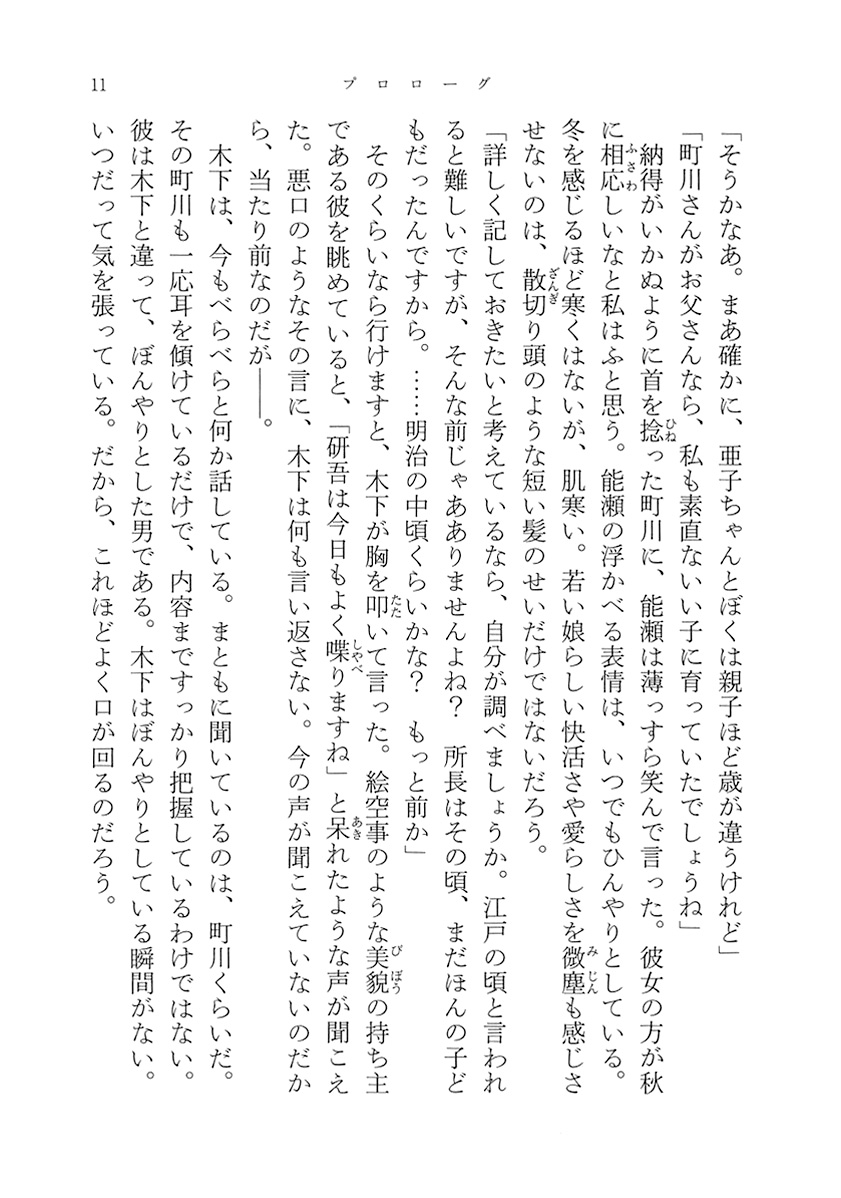 11
プロローグ
「そうかなあ。まあ確かに、亜子ちゃんとぼくは親子ほど歳が違うけれど」
「町川さんがお父さんなら、私も素直ないい子に育っていたでしょうね」
　納得がいかぬように首を捻った町川に、能瀬は薄っすら笑んで言った。彼女の方が秋
に相応しいなと私はふと思う。能瀬の浮かべる表情は、いつでもひんやりとしている。
冬を感じるほど寒くはないが、肌寒い。若い娘らしい快活さや愛らしさを微塵も感じさ
せないのは、散切り頭のような短い髪のせいだけではないだろう。
「詳しく記しておきたいと考えているなら、自分が調べましょうか。江戸の頃と言われ
ると難しいですが、そんな前じゃありませんよね？　所長はその頃、まだほんの子ど
もだったんですから。……明治の中頃くらいかな？　もっと前か」
　そのくらいなら行けますと、木下が胸を叩いて言った。絵空事のような美貌の持ち主
である彼を眺めていると、「研吾は今日もよく喋りますね」と呆れたような声が聞こえ
た。悪口のようなその言に、木下は何も言い返さない。今の声が聞こえていないのだか
ら、当たり前なのだが――。
　木下は、今もべらべらと何か話している。まともに聞いているのは、町川くらいだ。
その町川も一応耳を傾けているだけで、内容まですっかり把握しているわけではない。
彼は木下と違って、ぼんやりとした男である。木下はぼんやりとしている瞬間がない。
いつだって気を張っている。だから、これほどよく口が回るのだろう。